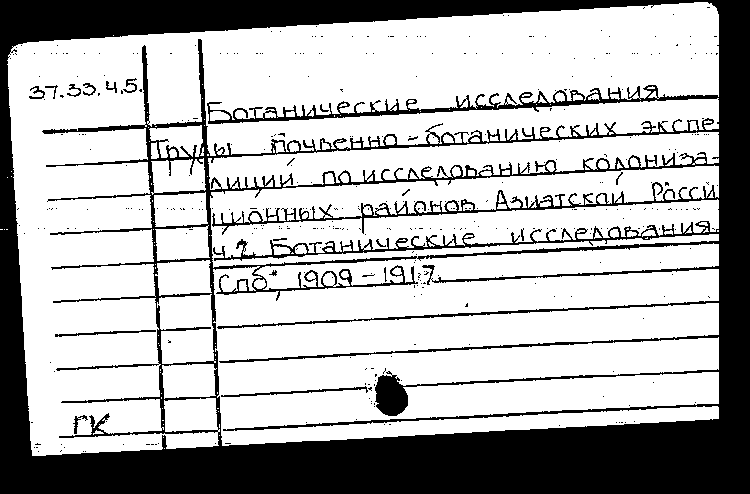 37.33.4.5.
Ботанические исследования.
Труды почвенно-ботанических экспе-
диций по исследованию колониза-
ционных районов Азиатской Росси
ч.2. Ботанические исследования.
Спб., 1909-1917.
ГК